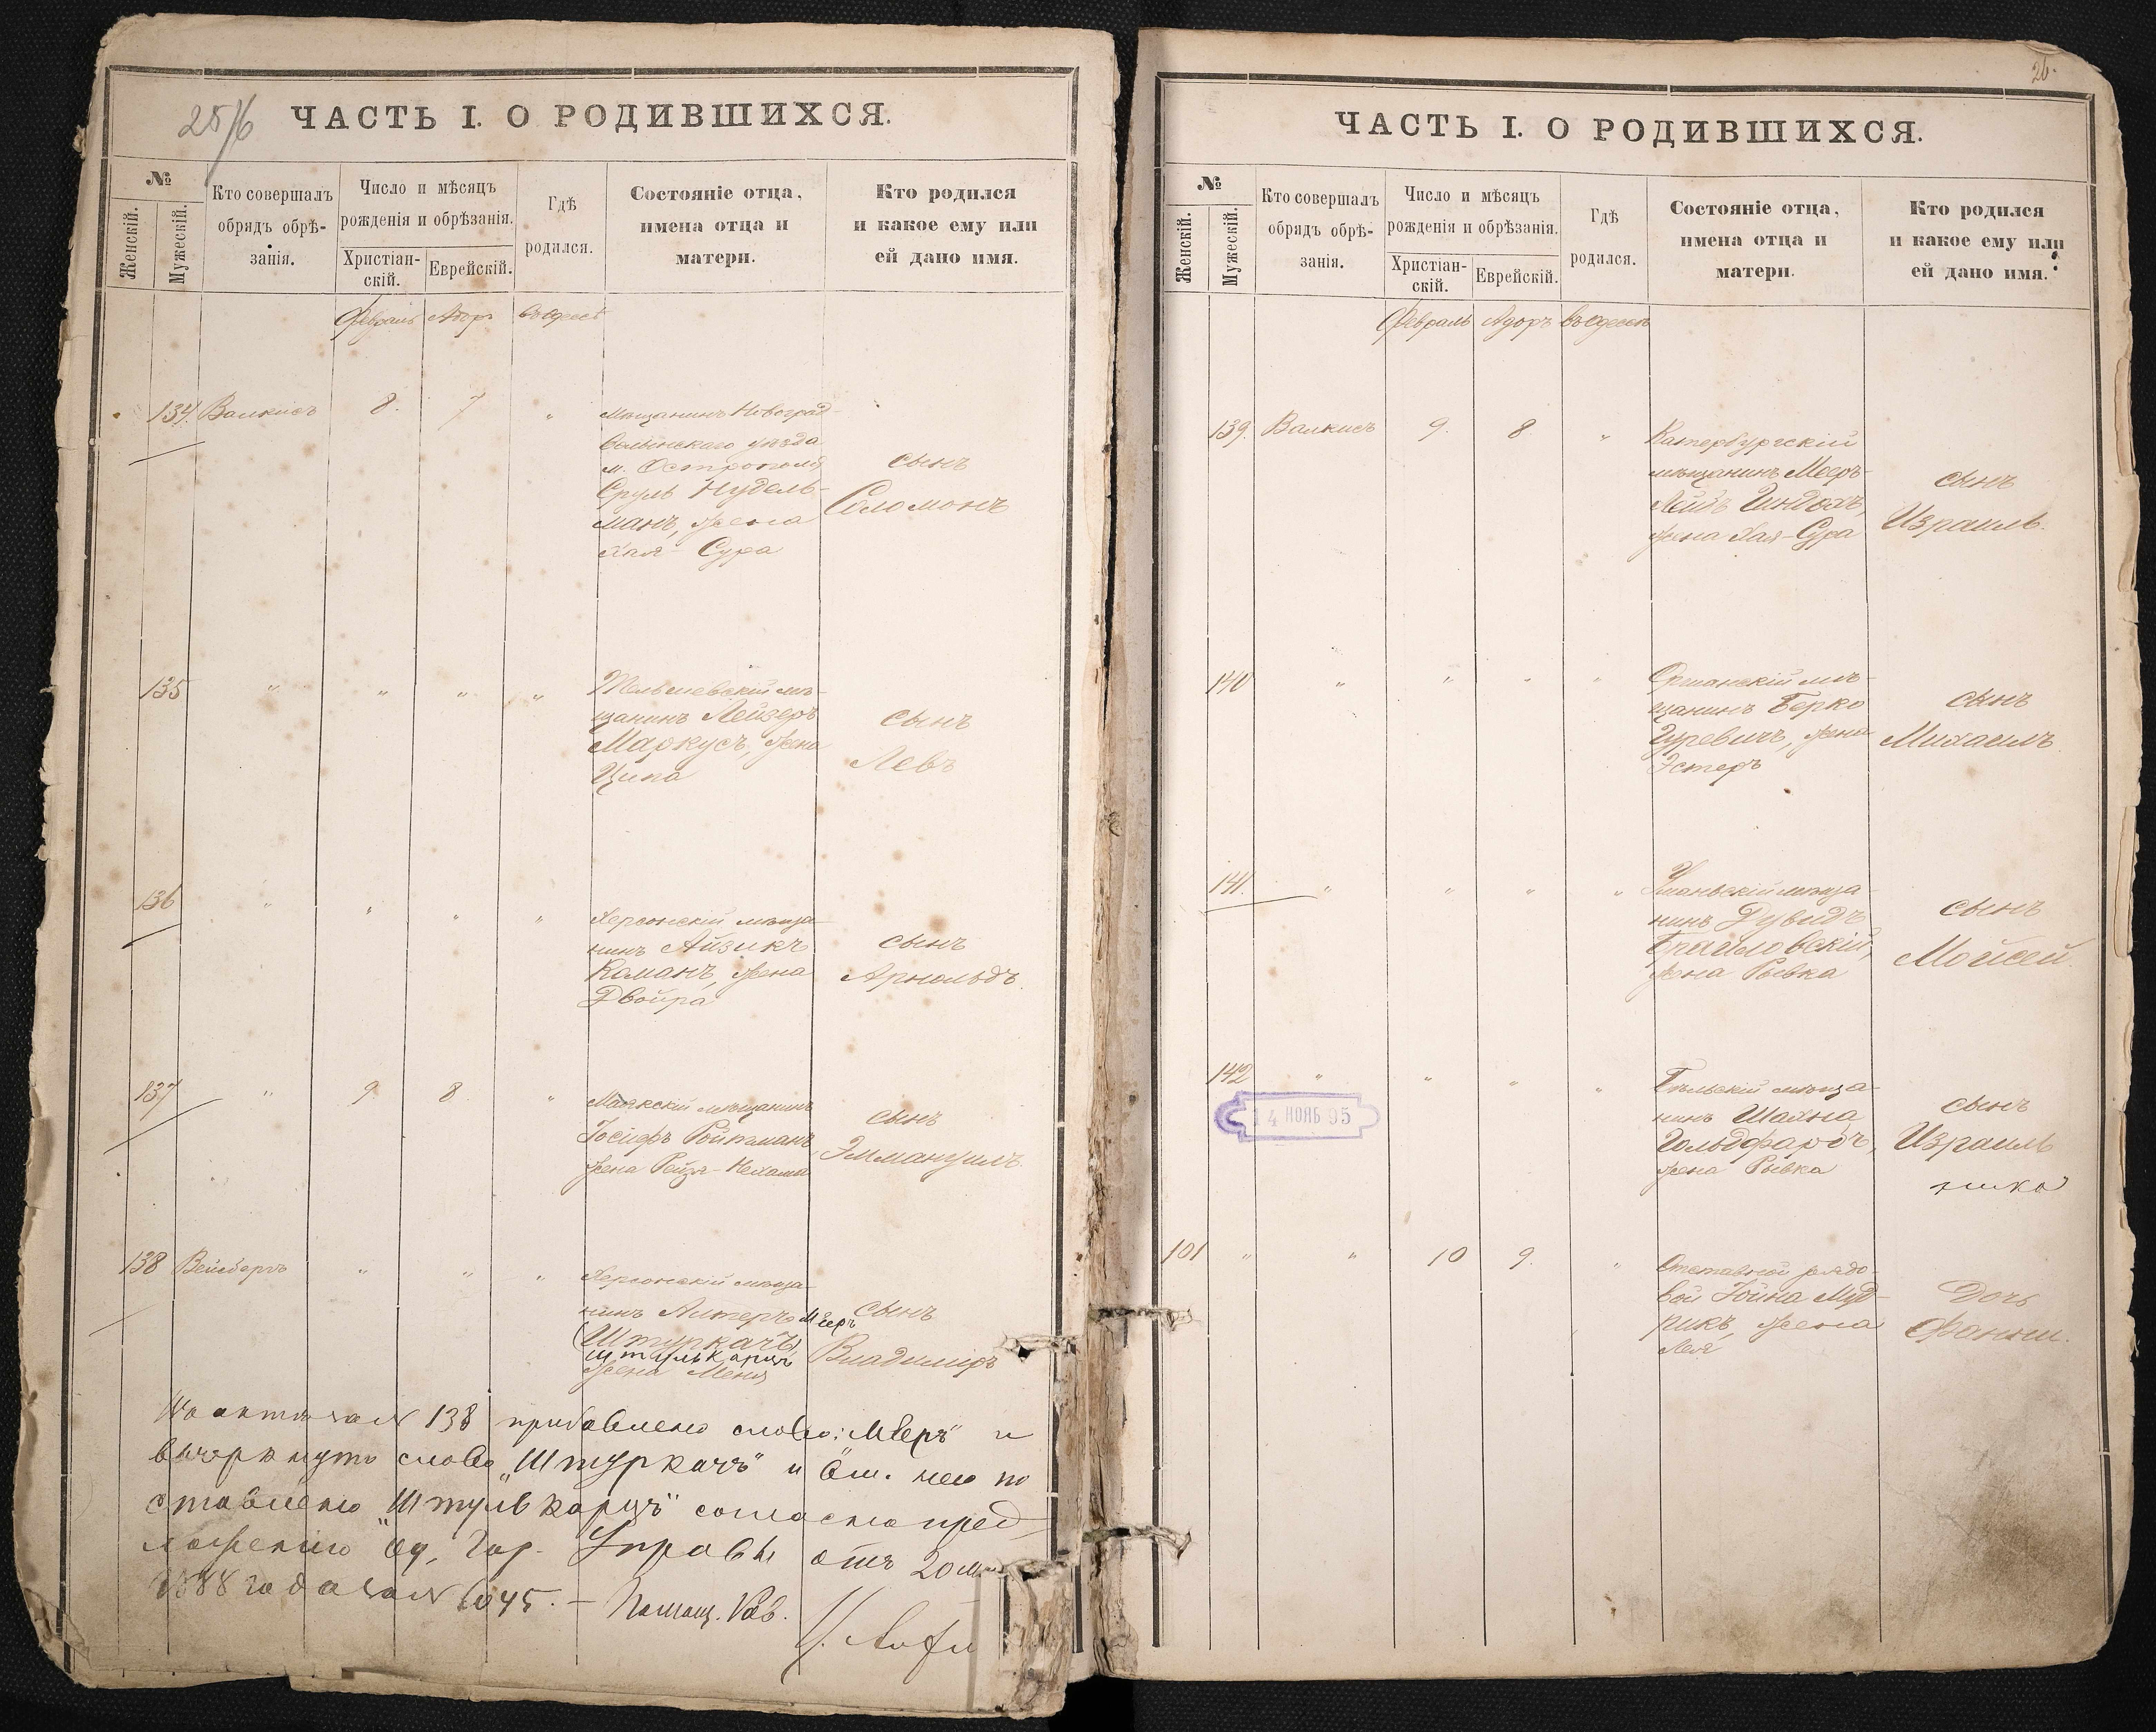 25/6
ЧАСТЬ I. О РОДИВШИХСЯ.
№
Женскій.
Мужескій.
Кто совершалъ
обрядъ обрѣ-
занія.
Число и мѣсяцъ
рожденія и обрѣзанія.
Христіан-
скій.
Еврейскій.
Гдѣ
родился.
Состояніе отца,
имена отца и
матери.
Кто родился
и какое ему или
ей дано имя.
Февраль Адоръ въ Одессѣ
134. Валкисъ 8. 7 "
Мѣщанинъ Новоград-
Волынскаго уѣзда
м. Острополя
Сруль Нудель-
манъ, жена
Хая-Сура
сынъ
Соломонъ
135 " " " "
Тельшевскій мѣ-
щанинъ Лейзеръ
Маркусъ, жена
Ципа
сынъ
Левъ
136 " " " "
Херсонскій мѣща-
нинъ Айзикъ
Каманъ, жена
Двойра
сынъ
Арнольдъ.
137 " 9 8 "
Маякскій мѣщанинъ
Іосифъ Ройтманъ
жена Рейзя-Нехама
сынъ
Эммануилъ
138 Вейсбергъ " " "
Херсонскій мѣща-
нинъ Алтеръ Меєръ
(Штуркачъ)
Штулькарцъ
жена Меня
сынъ
Владиміръ
138 прибавлено слово: "Меєръ" и
вычеркнуто слово "Штуркачъ" и вм. него по
ставлено "Штулькарцъ" согласно пред
ложенію Од. Гор. Управы отъ 20
1888 года за № 6045. — Помощ. Рав.
26.
ЧАСТЬ I. О РОДИВШИХСЯ.
№
Женскій.
Мужескій.
Кто совершалъ
обрядъ обрѣ-
занія.
Число и мѣсяцъ
рожденія и обрѣзанія.
Христіан-
скій.
Еврейскій.
Гдѣ
родился.
Состояніе отца,
имена отца и
матери.
Кто родился
и какое ему или
ей дано имя.
Февраль Адоръ въ Одессѣ
139. Валкисъ 9. 8 "
Катербургскій
мѣщанинъ Меєръ-
Лейбъ
жена Хая-Сура
сынъ
Израиль.
140 " " " "
Оршанскій мѣ-
щанинъ Берко
Гуревичъ, жена
Эстеръ
сынъ
Михаилъ.
141. " " " "
Уманьскій мѣща-
нинъ Дувидъ
Браиловскій,
жена Рывка
сынъ
Мойсей.
142 " " " "
14 НОЯБ 95
Бѣльскій мѣща-
нинъ Шахна
Гольдфарбъ,
жена Рывка
сынъ
Израиль
101 " " 10 9. "
Отставной рядо-
вой Іойна Муд-
рикъ, жена
Лея
Дочь
Фанни.